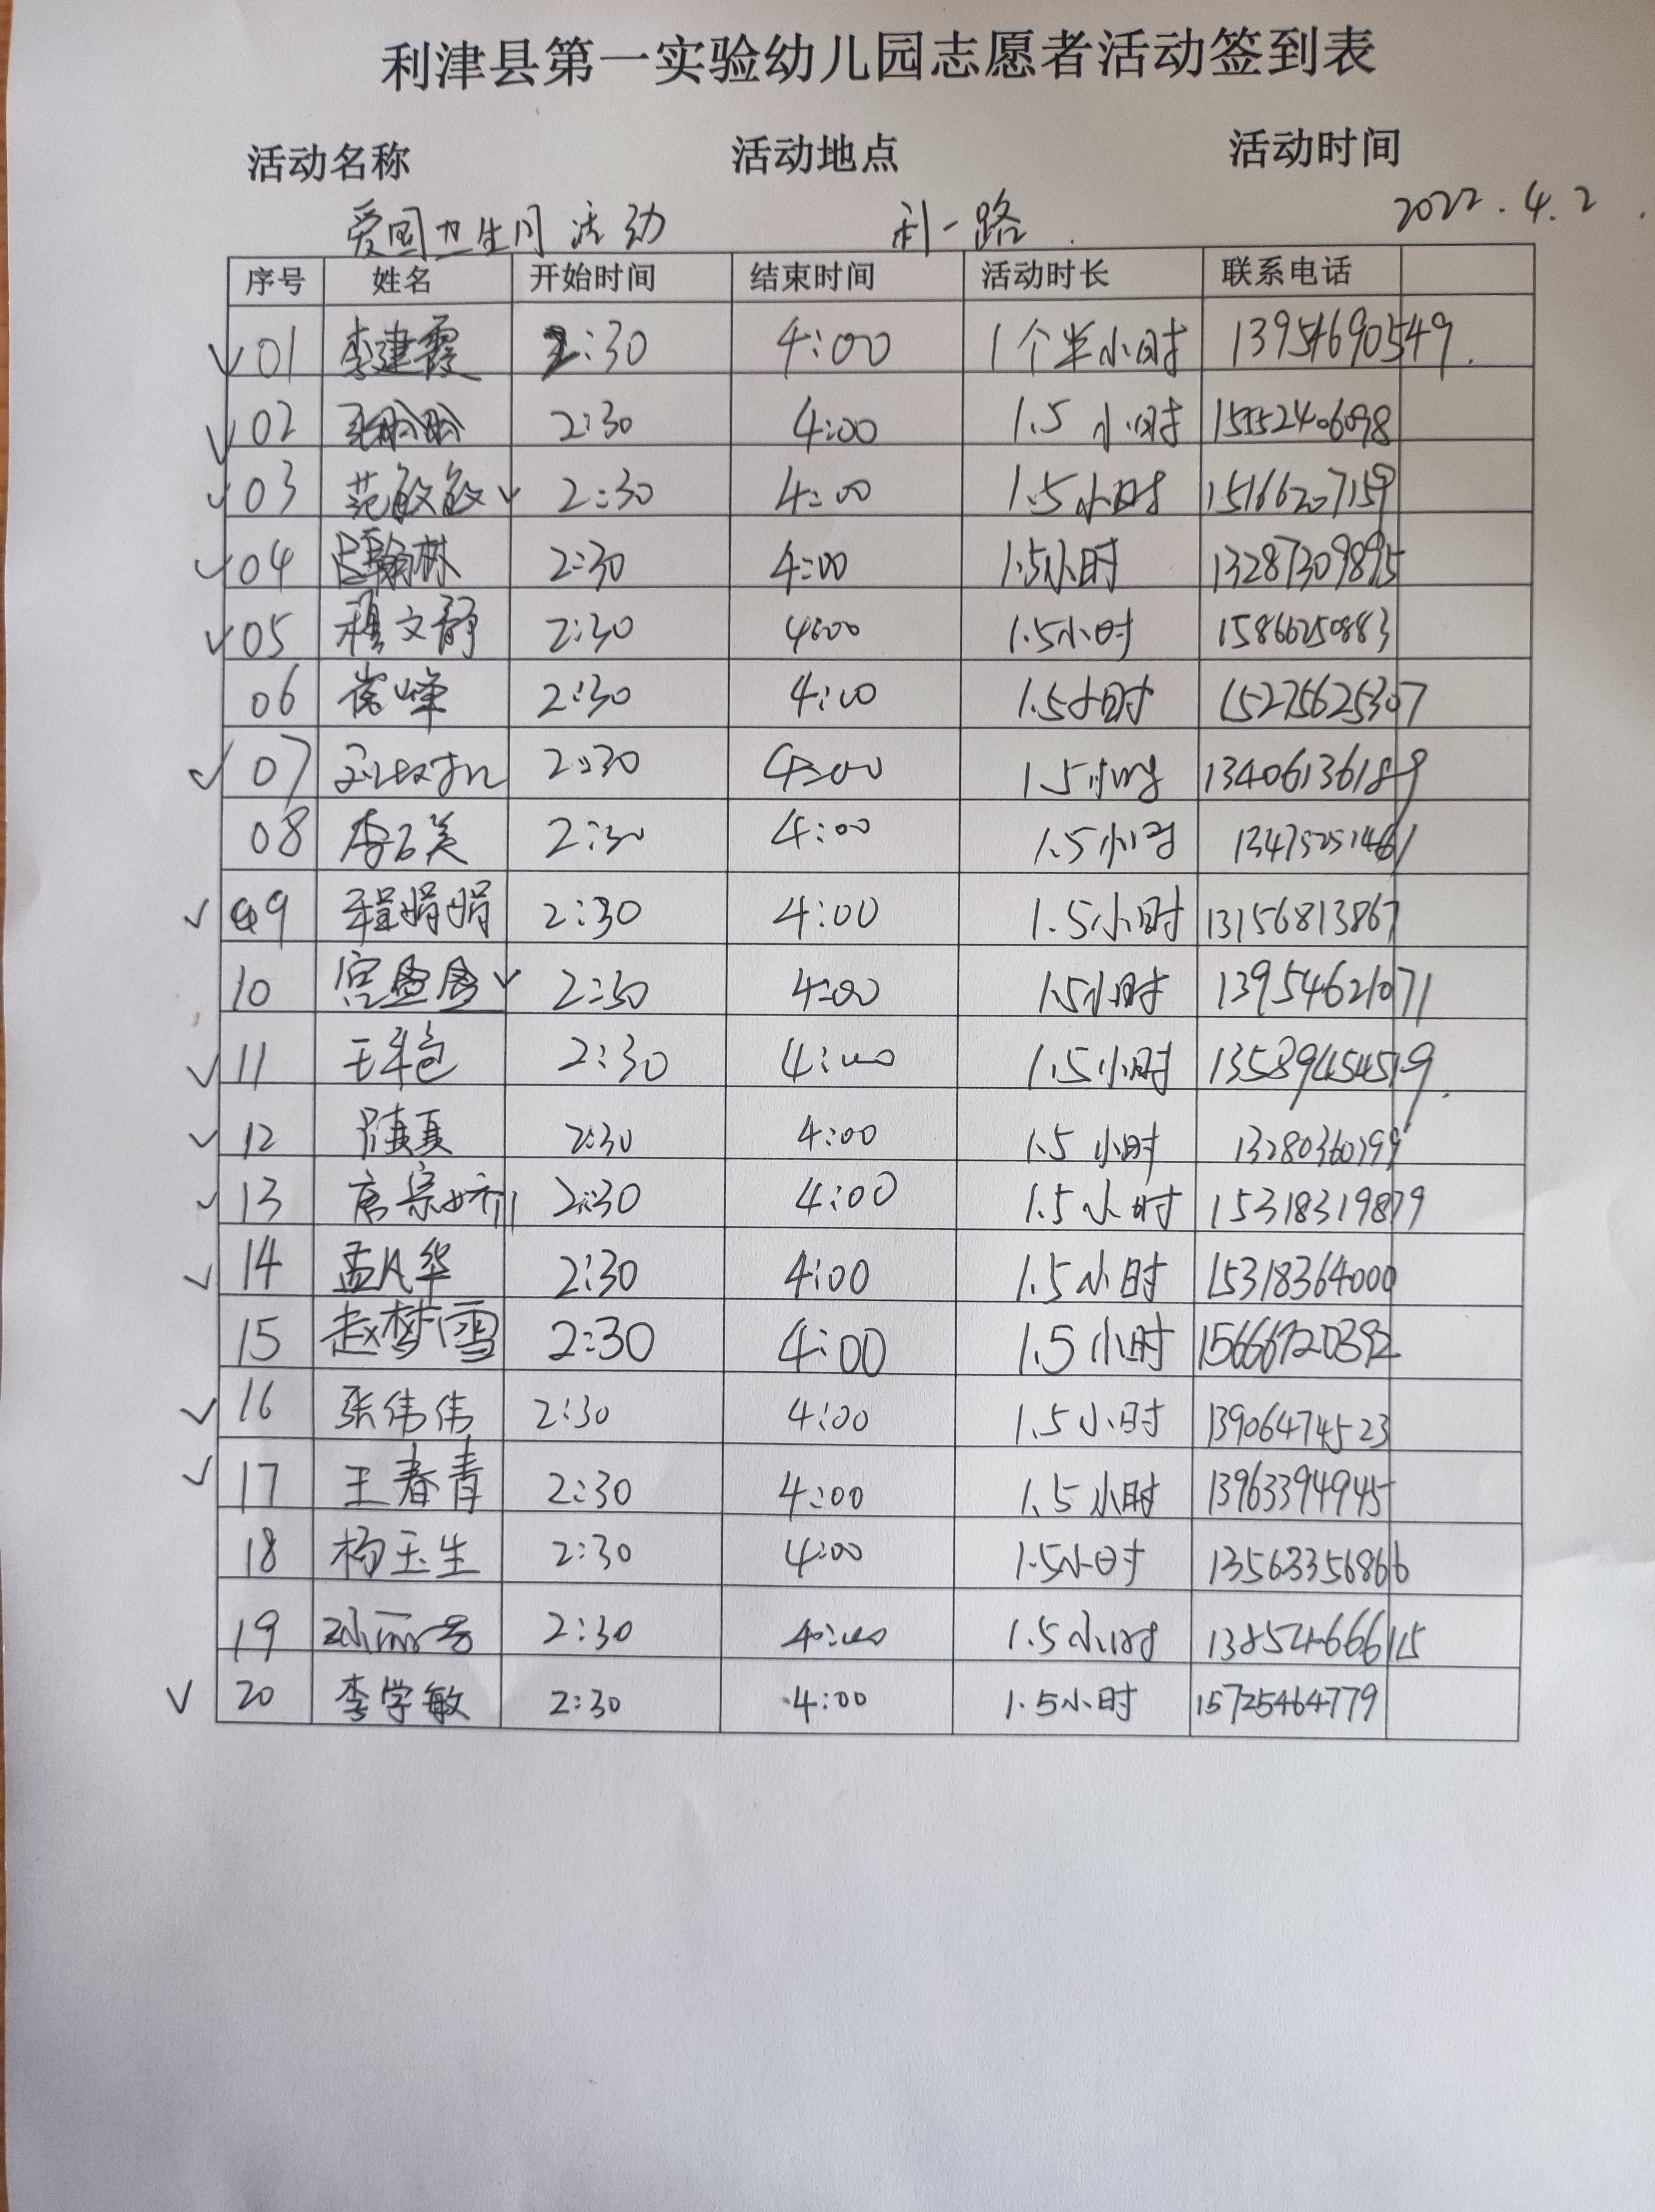 利津县第一实验幼儿园志愿者活动签到表
活动名称 活动地点 活动时间
爱国卫生月活动 利一路. 2022.4.2.
序号 姓名 开始时间 结束时间 活动时长 联系电话
√ 01 李建霞 2:30 4:00 1个半小时 13954690549.
√ 02 2:30 4:00 1.5小时 15552406098
√ 03 范敏敏 √ 2:30 4:00 1.5小时 15166207159
√ 04 吕翰林 2:30 4:00 1.5小时 13287309895
√ 05 穆文静 2:30 4:00 1.5小时 15866250883
06 崔峰 2:30 4:00 1.5小时 15275625307
√ 07 2:30 4:00 1.5小时 13406136189
08 2:30 4:00 1.5小时 13475251461
√ 09 程娟娟 2:30 4:00 1.5小时 13156813867
10 宫盈盈 √ 2:30 4:00 1.5小时 13954621071
√ 11 2:30 4:00 1.5小时 13589454519.
√ 12 陆真真 2:30 4:00 1.5小时 13280360799
√ 13 2:30 4:00 1.5小时 15318319879
√ 14 孟凡华 2:30 4:00 1.5小时 15318364000
15 赵梦雪 2:30 4:00 1.5小时 15666720392
√ 16 张伟伟 2:30 4:00 1.5小时 13906474523
√ 17 王春青 2:30 4:00 1.5小时 13963394945
18 杨玉生 2:30 4:00 1.5小时 13563356866
19 2:30 4:00 1.5小时 13854666115
√ 20 李学敏 2:30 4:00 1.5小时 15725464779